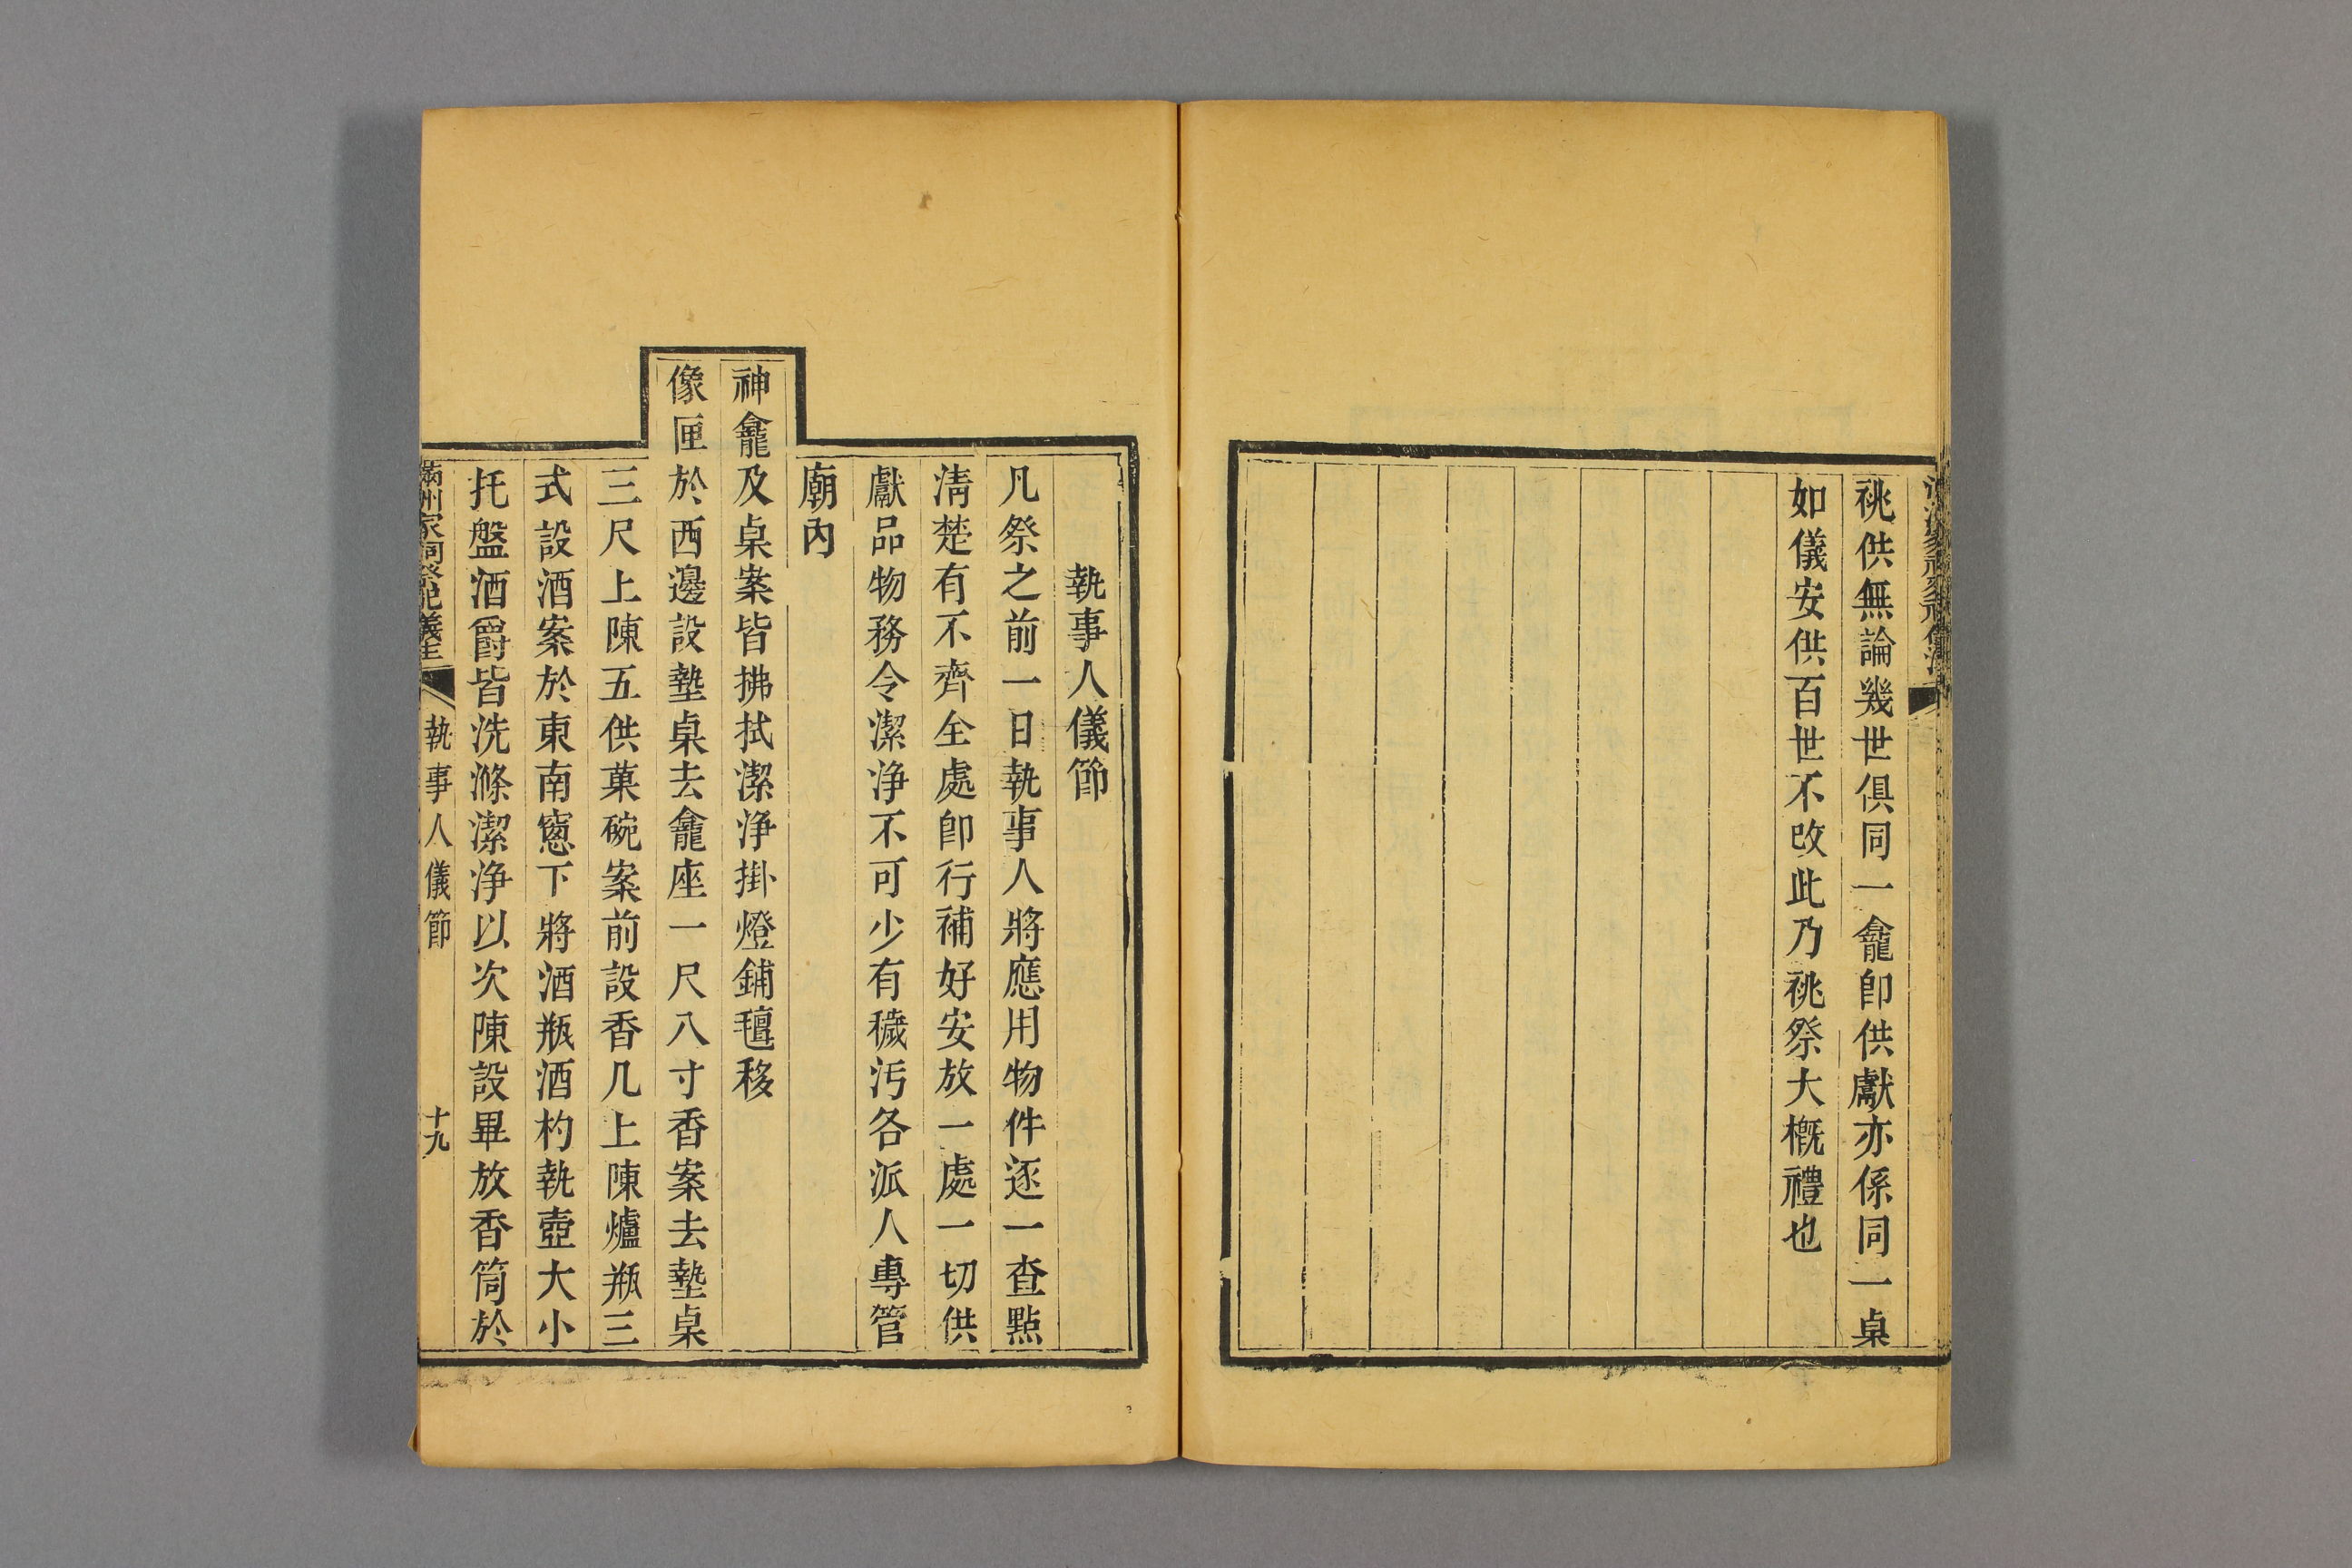 祧供無論幾世俱同一龕卽供獻亦係同一桌
如儀安供百世不改此乃祧祭大槪禮也
執事人儀節
凡祭之前一日執事人將應用物件逐一查點
淸楚有不齊全處卽行補好安放一處一切供
獻品物務令潔浄不可少有穢污各派人專管
廟內
神龕及桌案皆拂拭潔浄掛燈鋪氊移
像匣於西邊設墊桌去龕座一尺八寸香案去墊桌
三尺上陳五供菓碗案前設香几上陳爐瓶三
式設酒案於東南窻下將酒瓶酒杓執壺大小
托盤酒爵皆洗滌潔浄以次陳設畢放香筒於
執事人儀節
十九